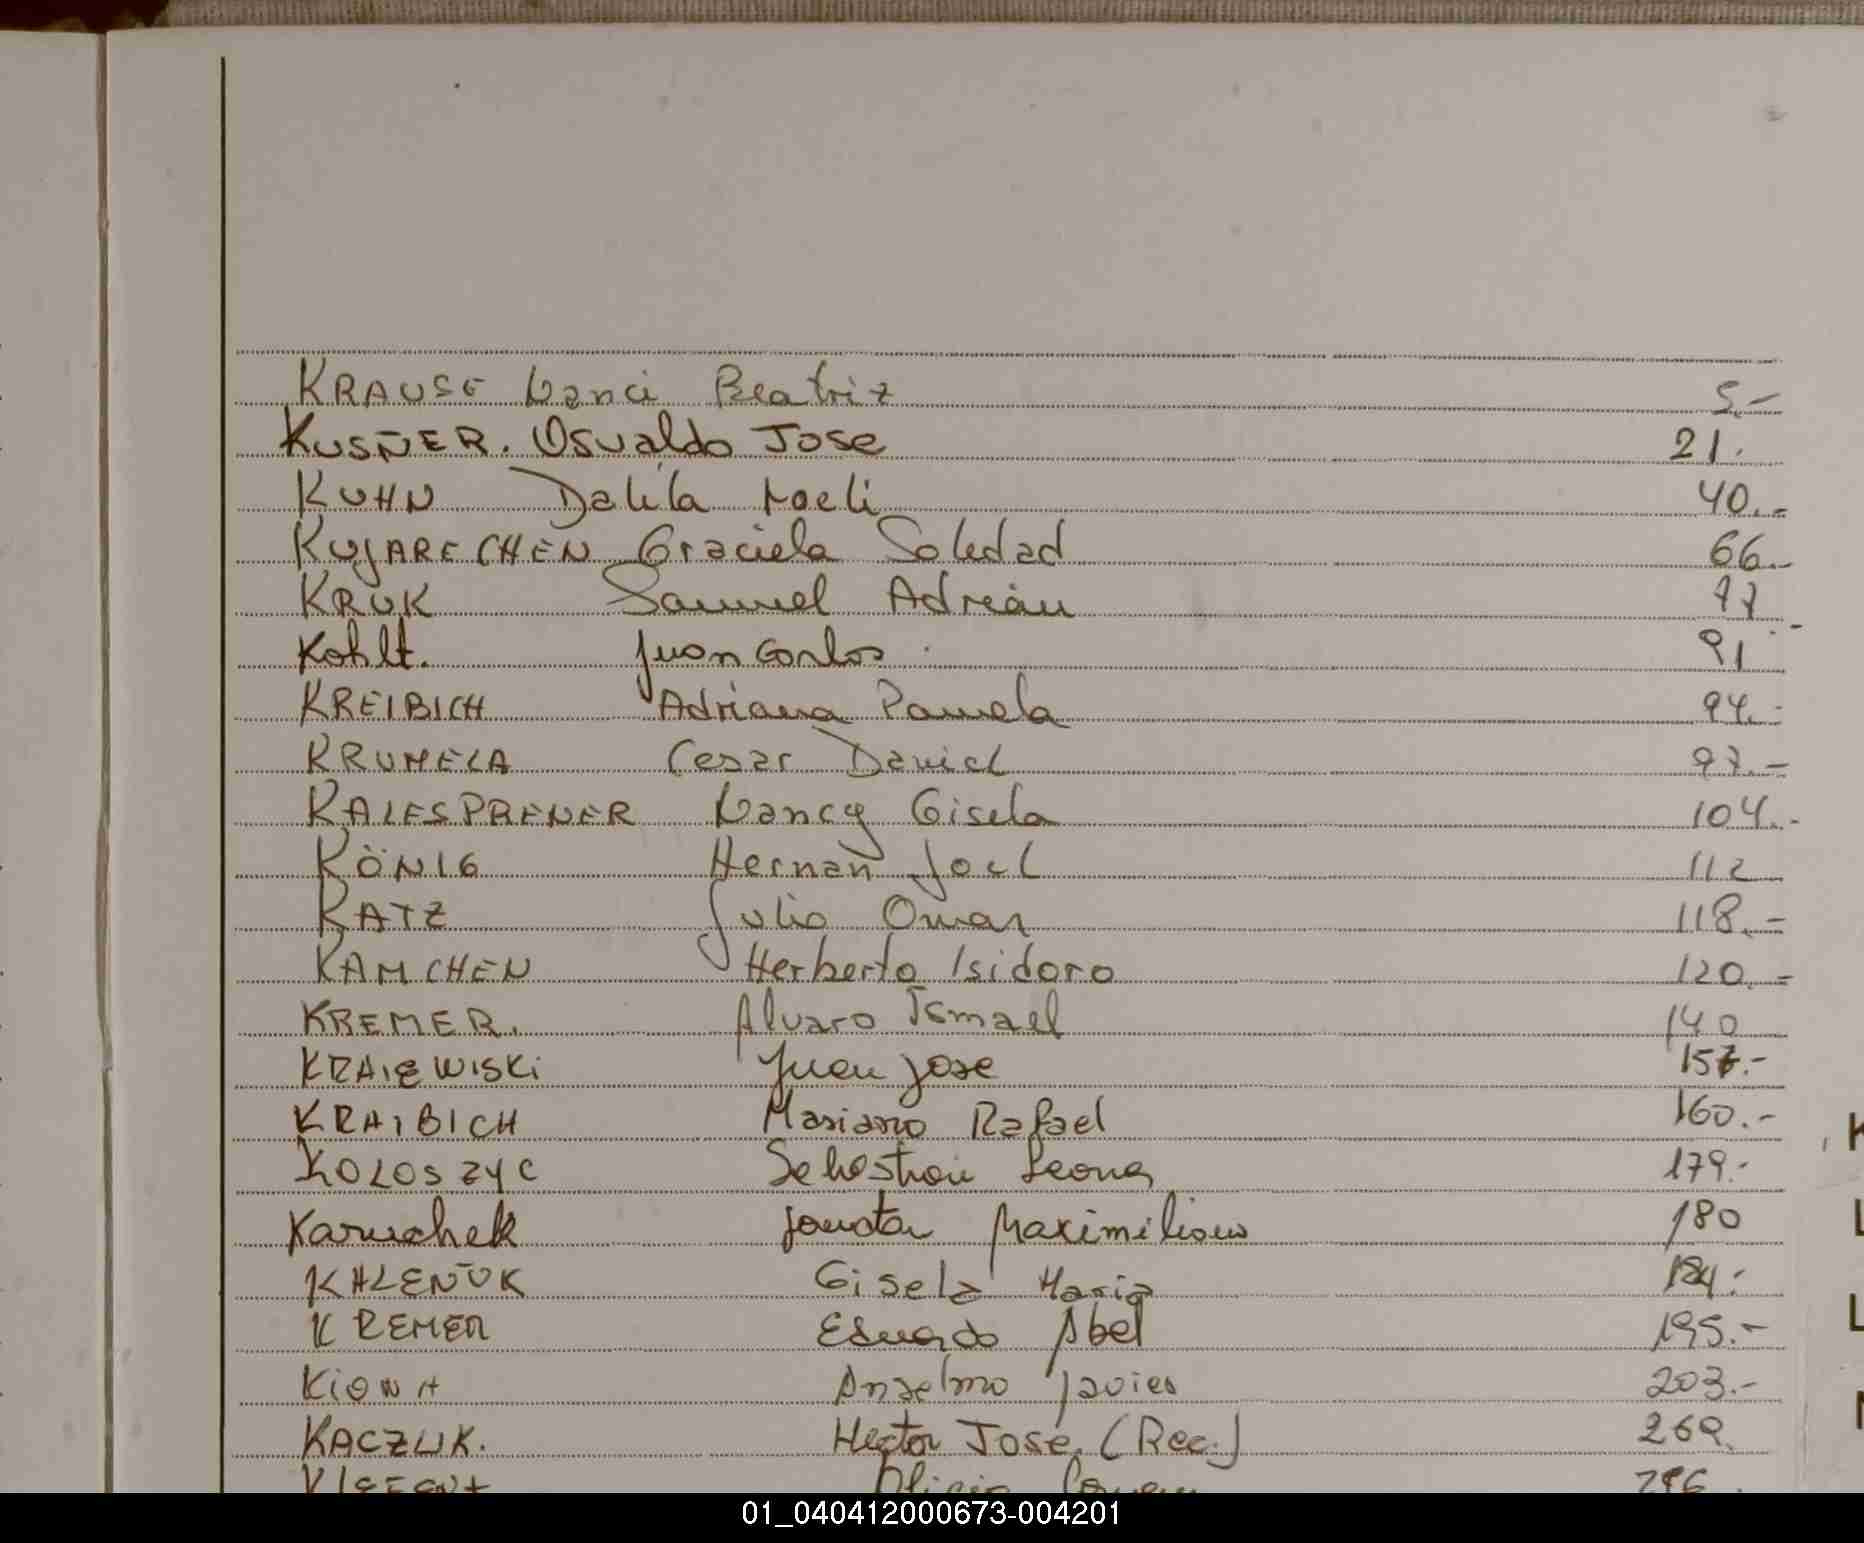 KRAUSE Nanci Beatriz 5.-
KUSÑER. Osvaldo Jose 21.
KUHN Dalila Noeli 40.-
KUJARECHEN Graciela Soledad 66.-
KRUK Samuel Adrián 77
Kohlt. Juan Carlos 91
KREIBICH Adriana Pamela 94.-
KRUMELA Cesar Daniel 97.-
KALESPRENER Nancy Gisela 104.-
KÖNIG Hernan Joel 112
KATZ Julio Omar 118.-
KAMCHEN Herberto Isidoro 120.-
KREMER. Alvaro Ismael 140
KRAIEWISKi Juan Jose 157.-
KRAIBICH Mariano Rafael 160.-
KOLOSZYC Sebastian 179.-
Karuchek Jonatan Maximiliano 180
KALEÑUK Gisela Maria 184.-
KREMER Eduardo Abel 195.-
KiOWA Anselmo Javier 203.-
KACZUK. Hector Jose. (Rec.) 269.
Alicia
01_040412000673-004201
K
L
L